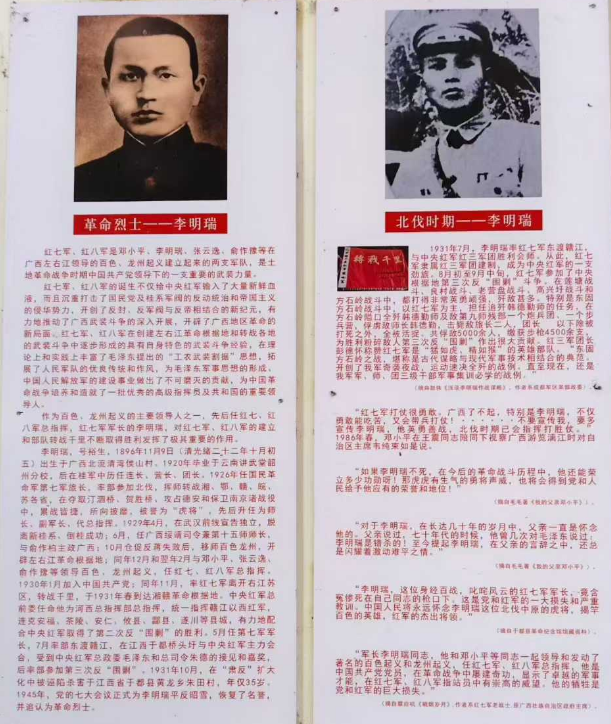 革命烈士——李明瑞
红七军、红八军是邓小平、李明瑞、张云逸、俞作豫等在
广西左右江领导的百色、龙州起义建立起来的两支军队，是土
地革命战争时期中国共产党领导下的一支重要的武装力量。
红七军、红八军的诞生不仅给中央红军输入了大量新鲜血
液，而且沉重打击了国民党及桂系军阀的反动统治和帝国主义
的侵华势力，开创了反封、反军阀与反帝相结合的新纪元，有
力地推动了广西武装斗争的深入开展，开辟了广西地区革命的
新局面。红七军、红八军在创建左右江革命根据地和转战各地
的武装斗争中逐步形成的具有自身特色的武装斗争经验，在理
论上和实践上丰富了毛泽东提出的“工农武装割据”思想，拓
展了人民军队的优良传统和作风，为毛泽东军事思想的形成，
中国人民解放军的建设事业做出了不可磨灭的贡献，为中国革
命战争培养和造就了一批优秀的高级指挥员及共和国的重要领
导人。
作为百色、龙州起义的主要领导人之一，先后任红七、红
八军总指挥，红七军军长的李明瑞，对红七军、红八军的建立
和部队转战千里不断取得胜利发挥了极其重要的作用。
李明瑞，号裕生，1896年11月9日（清光绪二十二年十月初
五）出生于广西北流清湾傍山村。1920年毕业于云南讲武堂韶
州分校，后在桂军中历任连长、营长、团长。1926年任国民革
命军第七军旅长，率部参加北伐，挥师转战湘、鄂、赣、皖、
苏各省，在夺取汀泗桥、贺胜桥、攻占德安和保卫南京诸战役
中，累战皆捷，所向披靡，被誉为“虎将”，先后升任为师
长、副军长、代总指挥。1929年4月，在武汉前线宣告独立，脱
离新桂系，倒桂成功；6月，任广西绥靖司令兼第十五师师长，
与俞作柏主政广西；10月仓促反蒋失败后，移师百色龙州，开
辟左右江革命根据地；同年12月和翌年2月与邓小平、张云逸、
俞作豫等领导百色、龙州起义，任红七、红八军总指挥，
1930年1月加入中国共产党；同年11月，率红七军离开右江苏
区，转战千里，于1931年春到达湘赣革命根据地，中央红军总
前委任命他为河西总指挥部总指挥，统一指挥赣江以西红军，
连克安福、茶陵、安仁、攸县、酃县、遂川等县城，有力地配
合中央红军取得了第二次反“围剿”的胜利。5月任第七军军
长，7月率部东渡赣江，在江西于都桥头圩与中央红军主力会
合，受到中央红军总政委毛泽东和总司令朱德的接见和嘉奖，
后率部参加第三次反“围剿”。1931年10月，在“肃反”扩大
化中被诬陷杀害于江西省于都县黄龙乡朱田村，年仅35岁。
1945年，党的七大会议正式为李明瑞平反昭雪，恢复了名誉，
并追认为革命烈士。
北伐时期——李明瑞
千里战转
1931年7月，李明瑞率红七军东渡赣江，
与中央红军红三军团胜利会师。从此，红七
军隶属红三军团建制，成为中央红军的一支
劲旅。8月初至9月中旬，红七军参加了中央
根据地第三次反“围剿”斗争。在莲塘战
斗、良村战斗、老营盘战斗、高兴圩战斗和
方石岭战斗中，都打得非常英勇顽强，歼敌甚多。特别是东固
方石岭战斗中，以红七军为主，担任歼灭韩德勤师的任务，在
方石岭隘口全歼韩德勤师及敌第九师残部一个炮兵团、一个步
兵营，俘虏敌师长韩德勤，击毙敌旅长二人，团长 以下除被
打死之外，全被活捉，共俘敌5000余人，缴获步枪4500余支，
为胜利粉碎敌人第三次反“围剿”作出很大贡献。红三军团长
彭德怀称赞红七军是“猛如虎、精如猴”的英雄部队。“东固
方石岭之战，堪称是古代谋略与现代军事技术相结合的典范，
开创了我军奇袭夜战、运动速决全歼的战例。直至现在，还是
我军军、师、团三级干部军事集训必学的战例。
“红七军打仗很勇敢。广西了不起，特别是李明瑞，不仅
勇敢能吃苦，又会带兵打仗！······不要宣传我，要多
宣传李明瑞，他英勇善战，北伐时期已会指挥打胜仗。”
1986年春，邓小平在王震同志陪同下视察广西游览漓江时对自
治区主席韦纯束如是说。
“如果李明瑞不死，在今后的革命战斗历程中，他还能荣
立多少功勋呀！那虎虎有生气的勇将声威，也将会得到党和人
民给予他应有的荣誉和地位！”
（摘自毛毛著《我的父亲邓小平》）。
“对于李明瑞，在长达几十年的岁月中，父亲一直是怀念
他的。父亲说过，七十年代的时候，他曾几次对毛泽东说过：
李明瑞是错杀的！至今提起李明瑞，在父亲的言辞之中，还总
是闪耀着激动难平之情。”
（摘自毛毛著《我的父亲邓小平》）。
“李明瑞，这位身经百战，叱咤风云的红七军军长，竟含
冤惨死在自己同志的枪口下。这是党和红军的一大损失和严重
教训。中国人民将永远怀念李明瑞这位北伐中原的虎将，揭竿
百色的英雄，红军的杰出将领。”
“军长李明瑞同志，他和邓小平等同志一起领导和发动了
著名的百色起义和龙州起义，任红七军、红八军总指挥，他是
中国共产党党员，在革命战争中屡建奇功，显示了卓越的军事
才能，在红七军、红八军指战员中有崇高的威望。他的牺牲是
党和红军的巨大损失。”